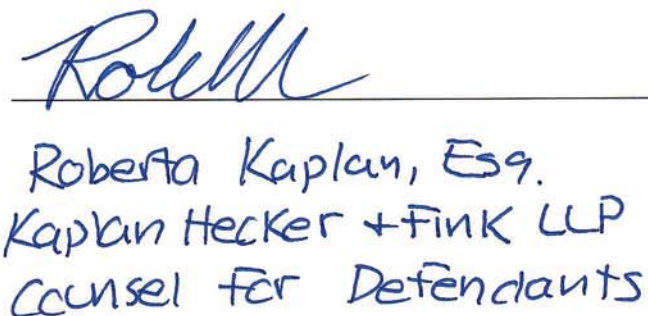 Roberta Kaplan, Esq.
Kaplan Hecker + Fink LLP
Counsel for Defendants